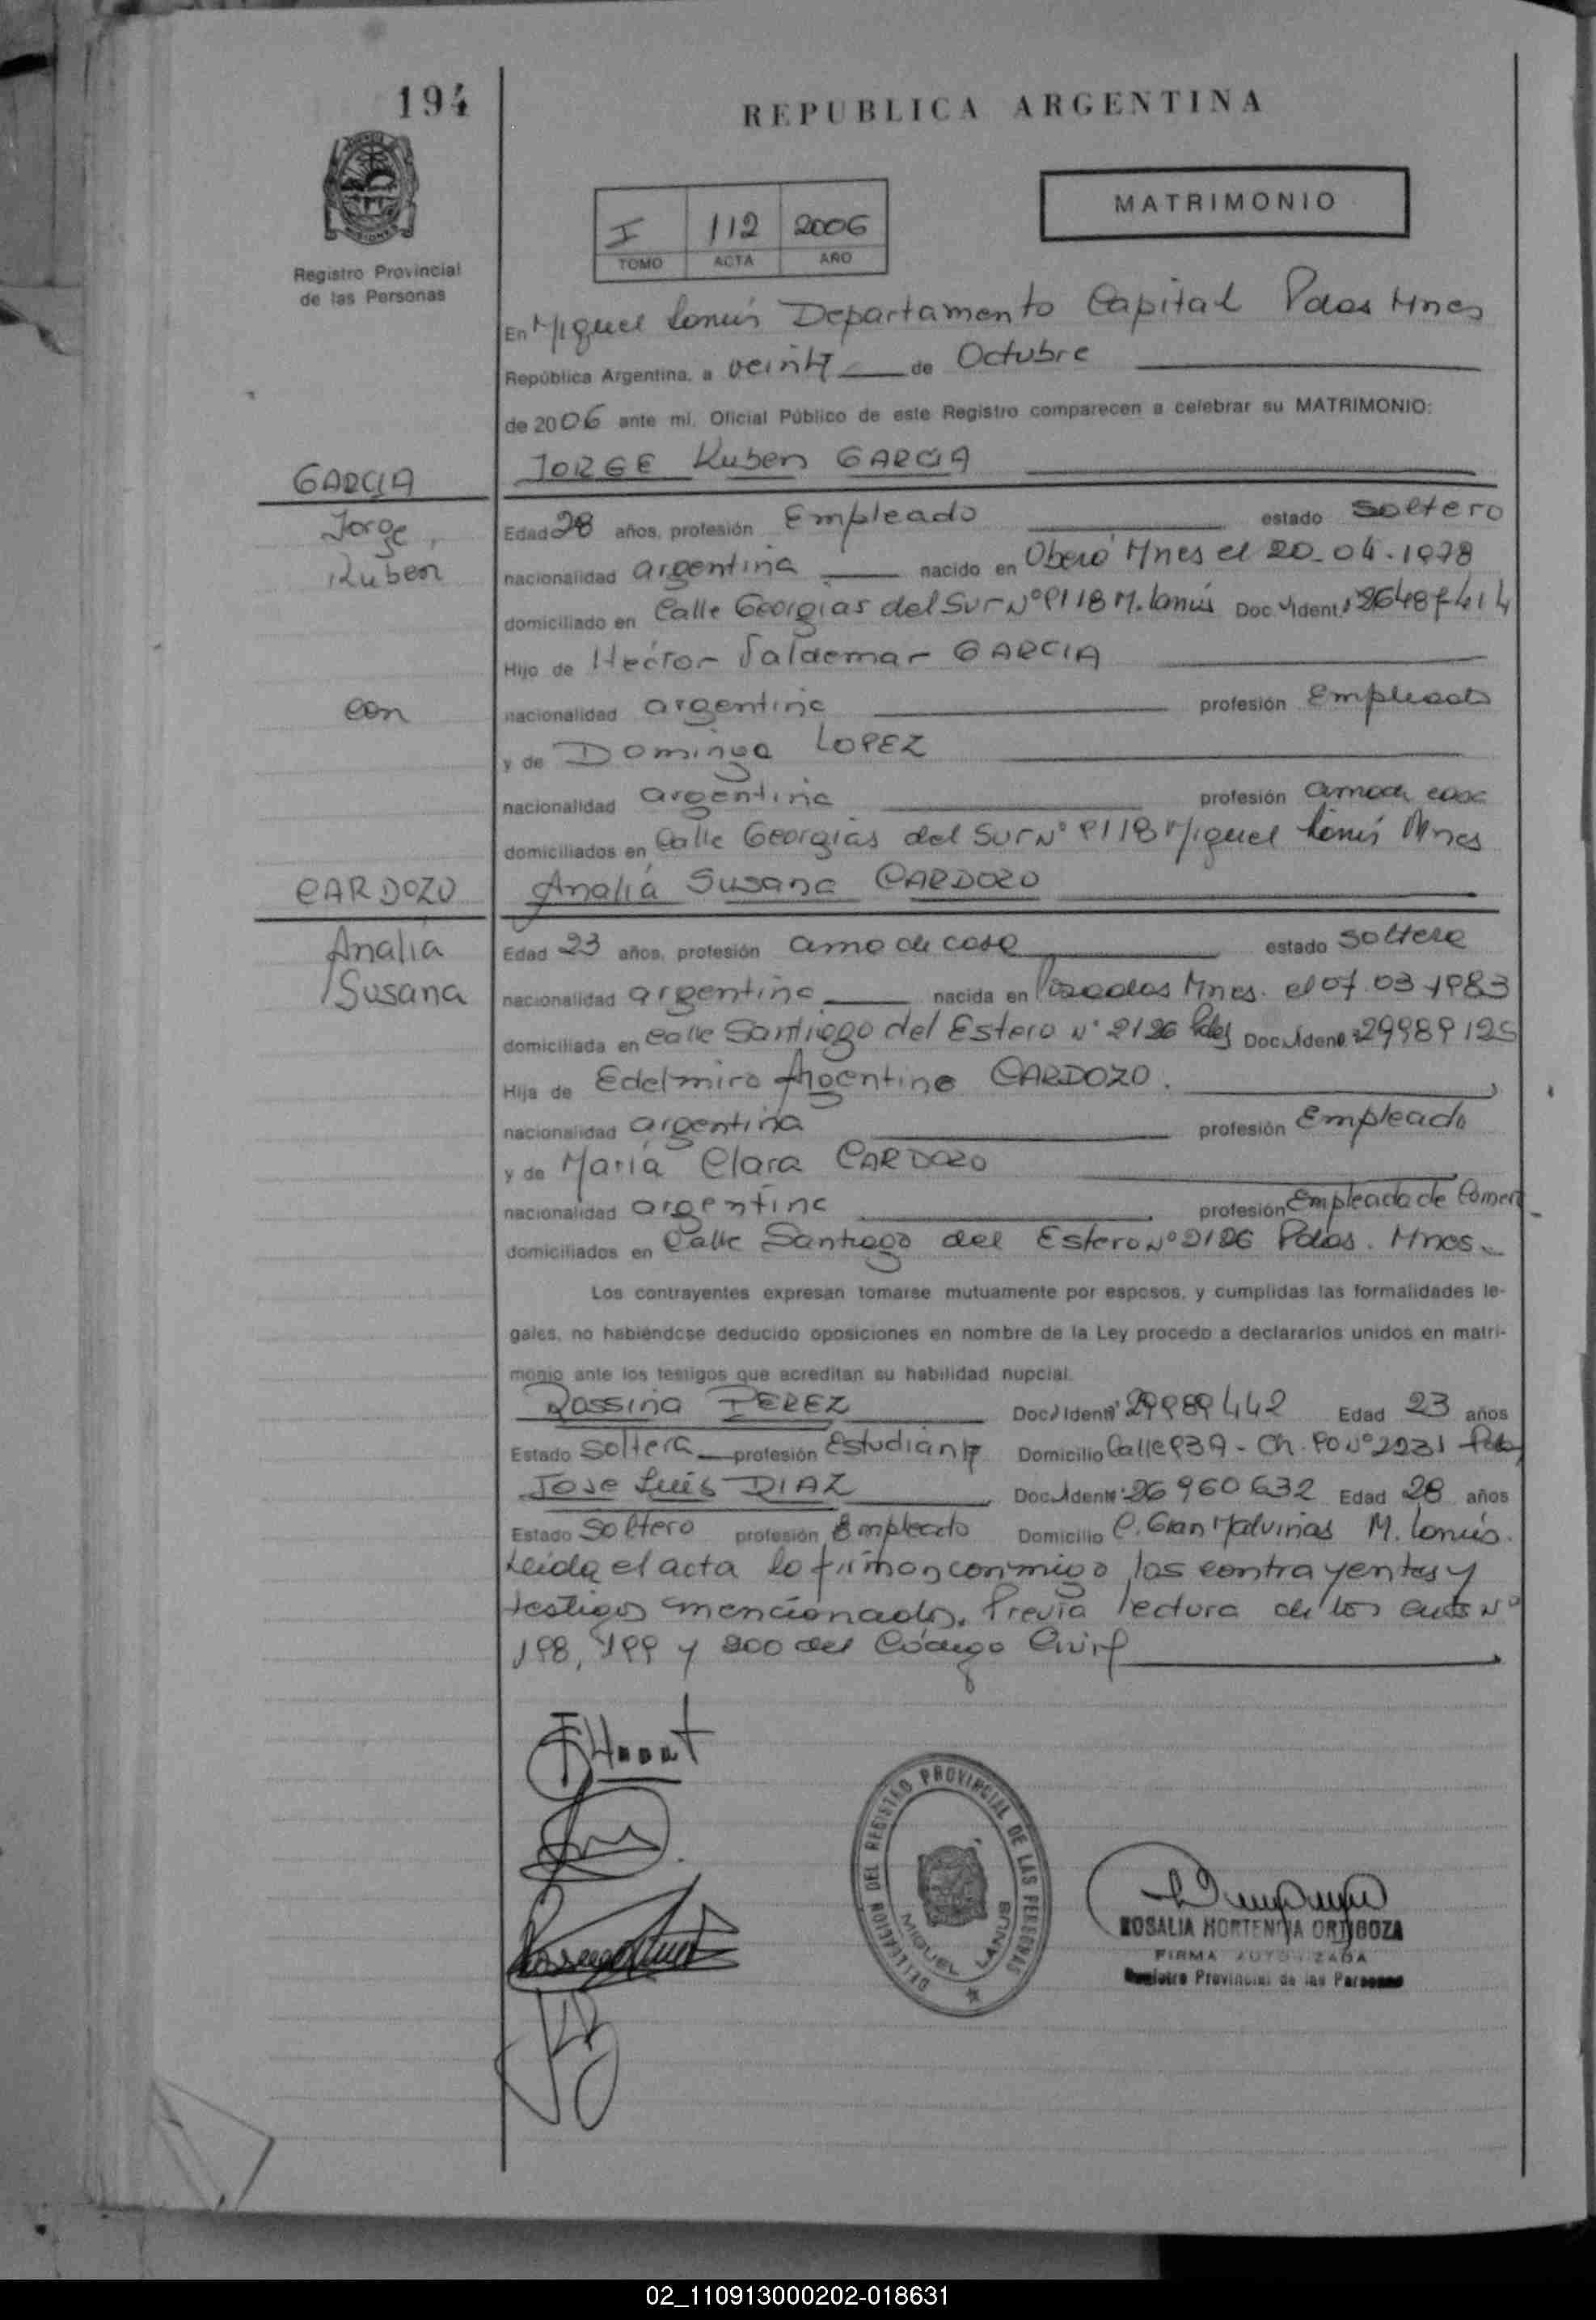 194
REPUBLICA ARGENTINA
Registro Provincial
de las Personas
I 112 2006
TOMO ACTA AÑO
MATRIMONIO
En Miguel Lanús Departamento Capital Pdas Mnes
República Argentina, a veinte de Octubre
de 2006 ante mi, Oficial Público de este Registro comparecen a celebrar su MATRIMONIO:
GARCIA
Jorge
Ruben
con
JORGE Ruben GARCIA
Edad 28 años, profesión Empleado estado soltero
nacionalidad argentina nacido en Oberá Mnes el 20-04-1978
domiciliado en Calle Georgias del Sur Nº 9118 M. Lanús Doc. Ident. 26487414
Hijo de Hector Valdemar GARCIA
nacionalidad argentina profesión Empleado
y de Dominga LOPEZ
nacionalidad argentina profesión ama de casa
domiciliados en Calle Georgias del Sur Nº 9118 Miguel Lanús Mnes
CARDOZO
Analia
Susana
Analia Susana CARDOZO
Edad 23 años, profesión ama de casa estado soltera
nacionalidad argentina nacida en Posadas Mnes. el 07.03-1983
domiciliada en calle Santiago del Estero Nº 2126 Pdas Doc. Ident. 29989125
Hija de Edelmiro Argentino CARDOZO.
nacionalidad argentina profesión Empleado
y de María Clara CARDOZO
nacionalidad argentina profesión Empleada de Comer
domiciliados en Calle Santiago del Estero Nº 2126 Pdas. Mnes.
Los contrayentes expresan tomarse mutuamente por esposos, y cumplidas las formalidades le-
gales, no habiéndose deducido oposiciones en nombre de la Ley procedo a declararlos unidos en matri-
monio ante los testigos que acreditan su habilidad nupcial.
Rossina PEREZ Doc. Ident. 29989442 Edad 23 años
Estado soltera profesión Estudiante Domicilio Calle 93A - Ch. 90 Nº 2231 Pdas
Jose Luis DIAZ Doc. Ident. 26960632 Edad 28 años
Estado soltero profesión Empleado Domicilio C. Gran Malvinas M. Lanús.
Leida el acta lo firman conmigo los contrayentes y
testigos mencionados. Previa lectura de los Nº
198, 199 y 200 del Código Civil
DELEGACION DEL REGISTRO PROVINCIAL DE LAS PERSONAS
MIGUEL LANUS
ROSALIA HORTENCIA ORTIGOZA
FIRMA AUTORIZADA
Registro Provincial de las Personas
02_110913000202-018631